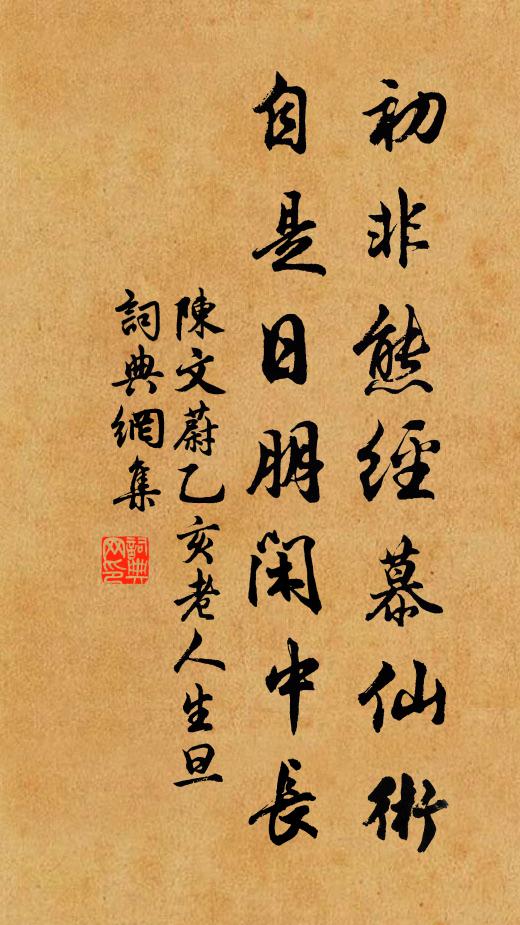 初非熊經慕仙術
自是日朋閑中長
陳文蔚乙亥老人生旦
詞典網集
詞典網印